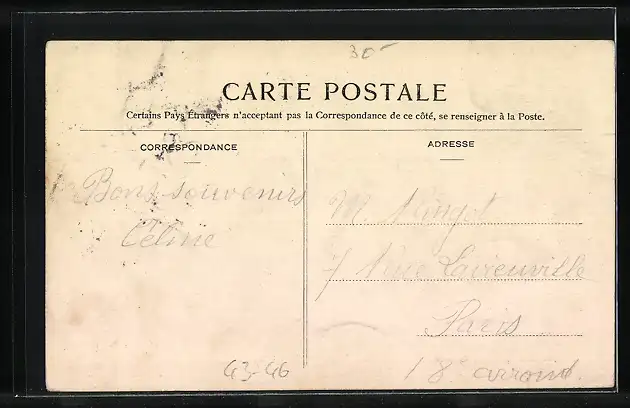 30-
CARTE POSTALE
Certains Pays Étrangers n'acceptant pas la Correspondance de ce côté, se renseigner à la Poste.
CORRESPONDANCE
ADRESSE
Bons souvenirs
Céline
M.
7 rue Lavieuville
Paris
18e arrond.
43-46